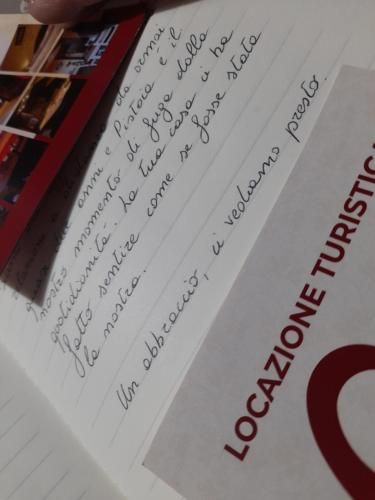 da ormai
anni e Pistoia è il
nostro momento di fuga dalla
quotidianità. La tua casa ci ha
fatto sentire come se fosse stata
la nostra.
Un abbraccio, ci vediamo presto.
LOCAZIONE TURISTIC